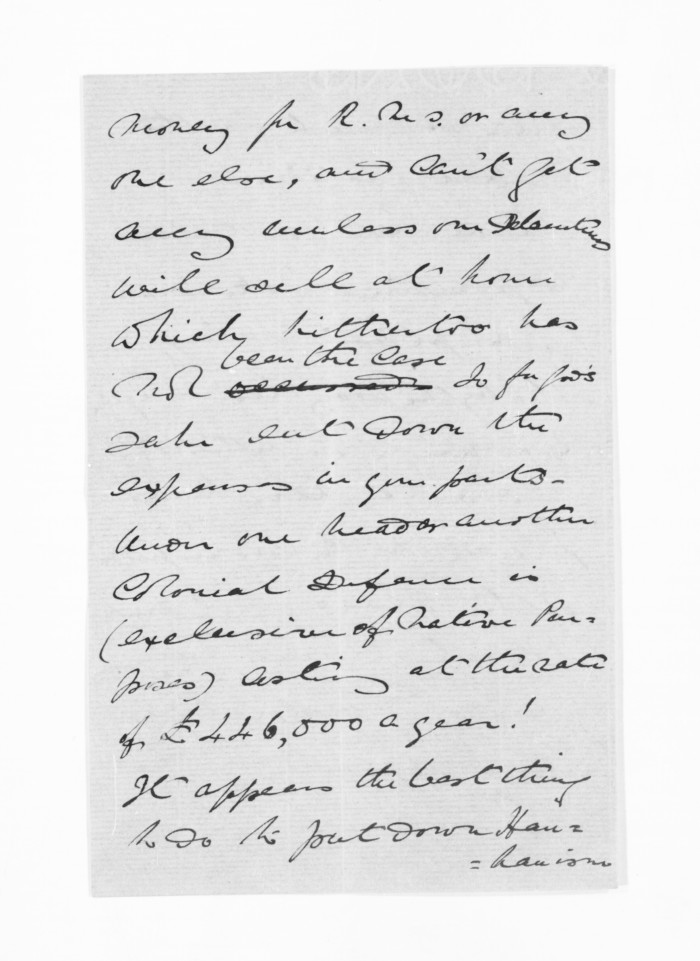 money for R. M s. or any
one else, and can't get
any unless our Debentures
will sell at home
which hithertoo has
been the case
not occurred So for god's
sake cut down the
expenses in your parts -
Under one head or another
Colonial Defence is
(exclusive of Native Pur=
poses) costing at the rate
of £446,000 a year!
It appears the best thing
to do to put down Hau=
=hauism